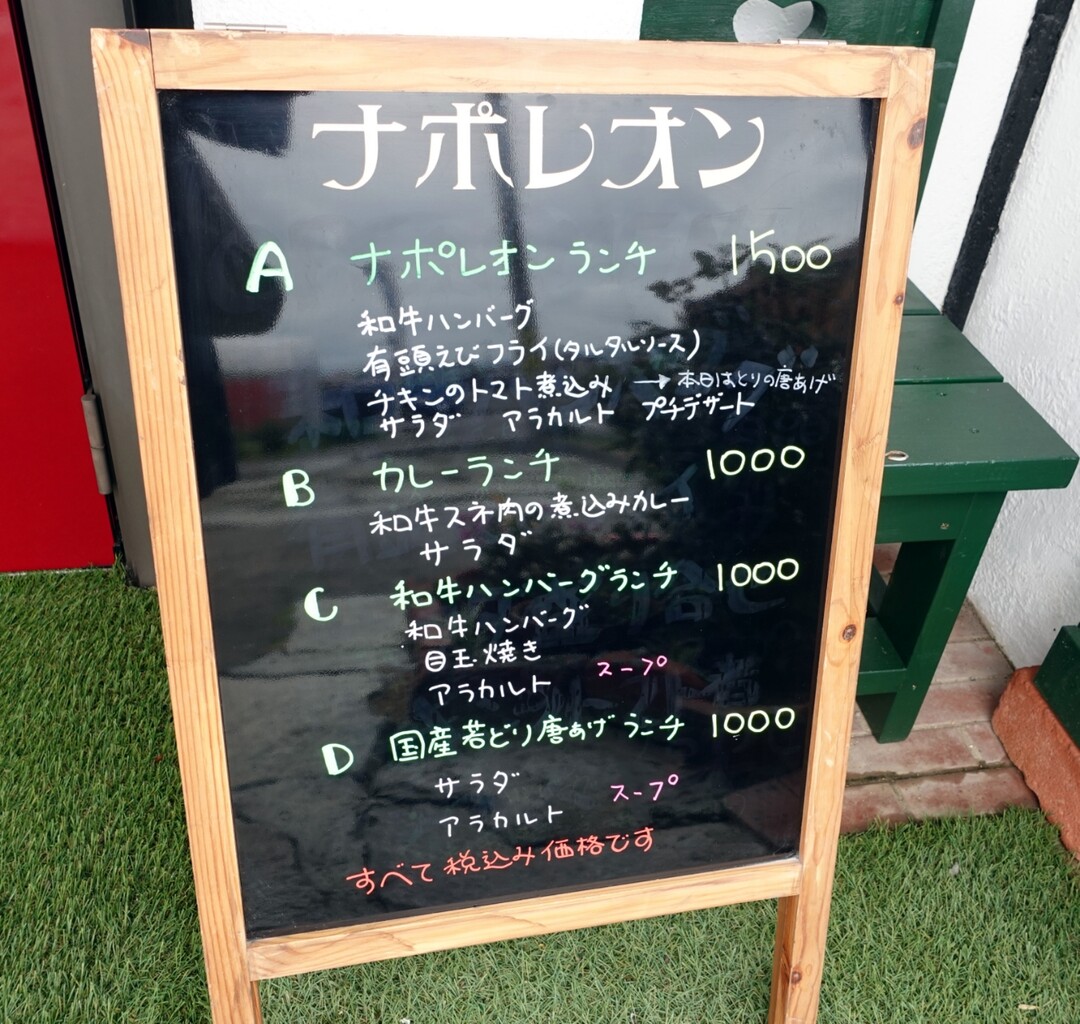 ナポレオン
A ナポレオンランチ 1500
和牛ハンバーグ
有頭えびフライ(タルタルソース)
チキンのトマト煮込み → 本日はとりの唐あげ
サラダ アラカルト プチデザート
B カレーランチ 1000
和牛スネ肉の煮込みカレー
サラダ
C 和牛ハンバーグランチ 1000
和牛ハンバーグ
目玉焼き
アラカルト スープ
D 国産若どり唐あげランチ 1000
サラダ
アラカルト スープ
すべて税込み価格です